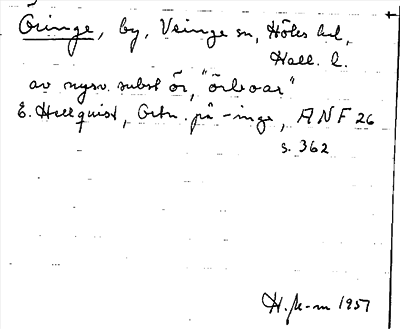 Öringe, by, Veinge sn, Höks hd,
Hall. l.
av nysv. subst ör, "örboar"
E. Hellquist, Ortn. på -inge, ANF 26
s. 362
1957